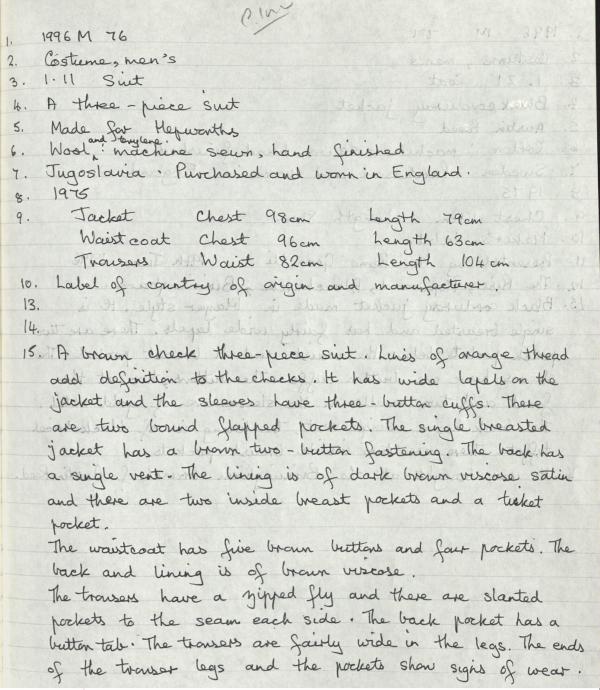 1. 1996 M 76
2. Costume, men's
3. 1.11 Suit
4. A three-piece suit
5. Made for Hepworths
6. Wool and terylene: machine sewn, hand finished
7. Jugoslavia. Purchased and worn in England.
8. 1975
9. Jacket Chest 98cm Length 79cm
Waistcoat Chest 96cm Length 63cm
Trousers Waist 82cm Length 104cm
10. Label of country of origin and manufacturer.
13.
14.
15. A brown check three-piece suit. Lines of orange thread
add definition to the checks. It has wide lapels on the
jacket and the sleeves have three-button cuffs. There
are two bound flapped pockets. The single breasted
jacket has a brown two-button fastening. The back has
a single vent. The lining is of dark brown viscose satin
and there are two inside breast pockets and a ticket
pocket.
The waistcoat has five brown buttons and four pockets. The
back and lining is of brown viscose.
The trousers have a zipped fly and there are slanted
pockets to the seam each side. The back pocket has a
button tab. The trousers are fairly wide in the legs. The ends
of the trouser legs and the pockets show signs of wear.